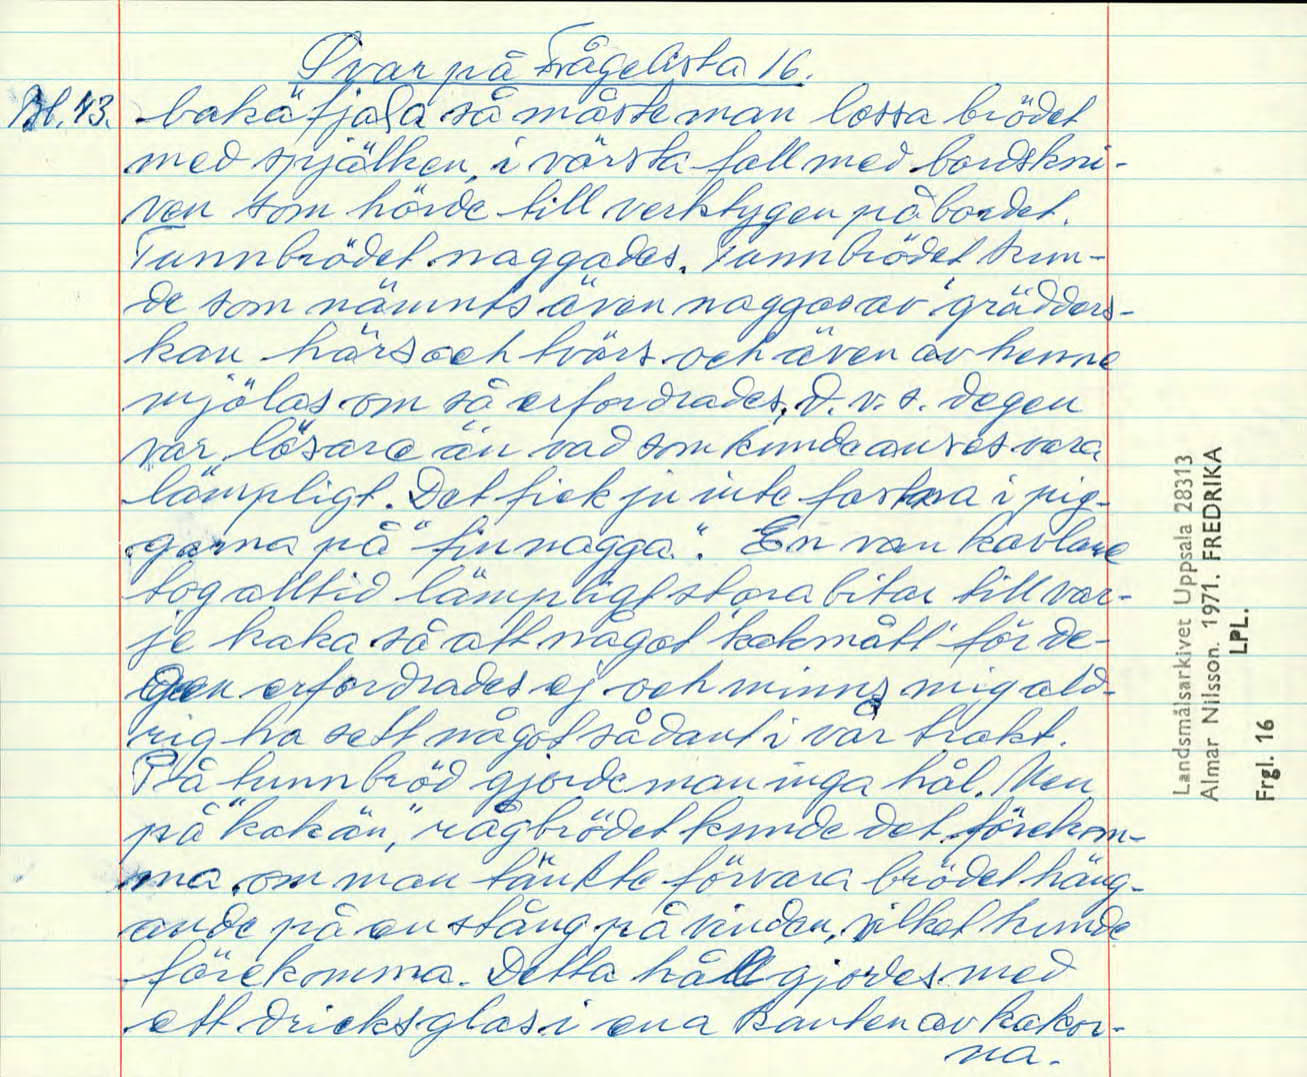 Svar på Frågelista 16.
Bl. 43. bakä"fjala så måste man lossa brödet
med spjälken, i värsta fall med bordskni-
ven som hörde till verktygen på bordet.
Tunnbrödet naggades. Tunnbrödet kun-
de som nämnts även naggas av "grädders-
kan härs och tvärs och även av henne
mjölas om så erfordrades, d.v.s. degen
var lösare än vad som kunde anses vara
lämpligt. Det fick ju inte fastna i pig-
garna på "finnagga". En van kavlare
tog alltid lämpligt stora bitar till var-
je kaka så att något "kakmått" för de-
gen erfordrades ej och minns mig ald-
rig ha sett något sådant i vår trakt.
På tunnbröd gjorde man inga hål. Men
på "kakän," rågbrödet kunde det förekom-
ma, om man tänkte förvara brödet häng-
ande på en stång på vinden, vilket kunde
förekomma. Detta hål gjordes med
ett dricksglas i ena kanten av kakor-
na.
Landsmålsarkivet Uppsala 28313
Almar Nilsson. 1971. FREDRIKA
LPL.
Frgl. 16